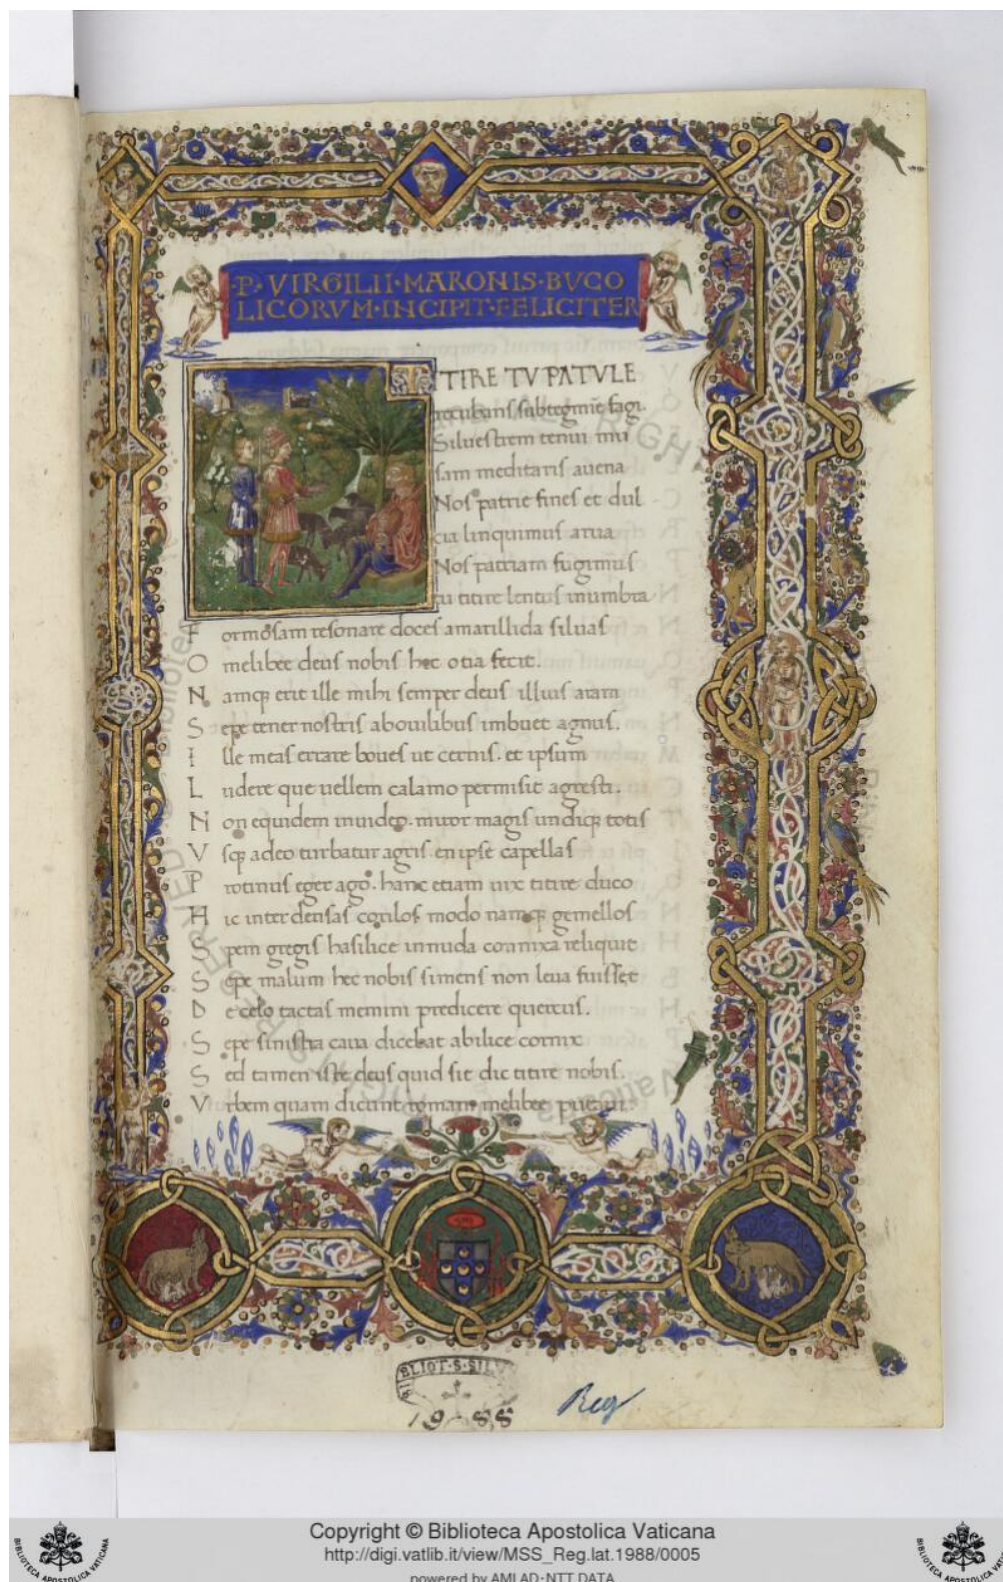 ·P·VIRGILII·MARONIS·BVCO
LICORVM·INCIPIT·FELICITER
TITIRE TV PATVLE
recubans sub tegmīe fagi.
Siluestrem tenui mu
sam meditaris auena
Nos patrie fines et dul
cia linquimus arua
Nos patriam fugimus
tu titire lentus in umbra
Formosam resonare doces amarillida siluas
O melibee deus nobis hec otia fecit.
Namq; erit ille mihi semper deus illius aram
Sepe tener nostris ab ouilibus imbuet agnus.
Ille meas errare boues ut cernis. et ipsum
Ludere que uellem calamo permisit agresti.
Non equidem inuideo. miror magis undiq; totis
Vsq; adeo turbatur agris en ipse capellas
Protinus eger ago. hanc etiam uix titire duco
Hic inter densas corilos modo namq; gemellos
Spem gregis hasilice in nuda connixa reliquit
Sepe malum hec nobis si mens non leua fuisset
De celo tactas memini predicere quercus.
Sepe sinistra caua dicebat abilice cornix
Sed tamen iste deus quid sit dic titire nobis.
Vrbem quam dicunt romam melibee putaui.
BIBLIOT·S·SILV
1988
Reg
Copyright © Biblioteca Apostolica Vaticana
http://digi.vatlib.it/view/MSS_Reg.lat.1988/0005
powered by AMLAD·NTT DATA
BIBLIOTECA APOSTOLICA VATICANA
BIBLIOTECA APOSTOLICA VATICANA